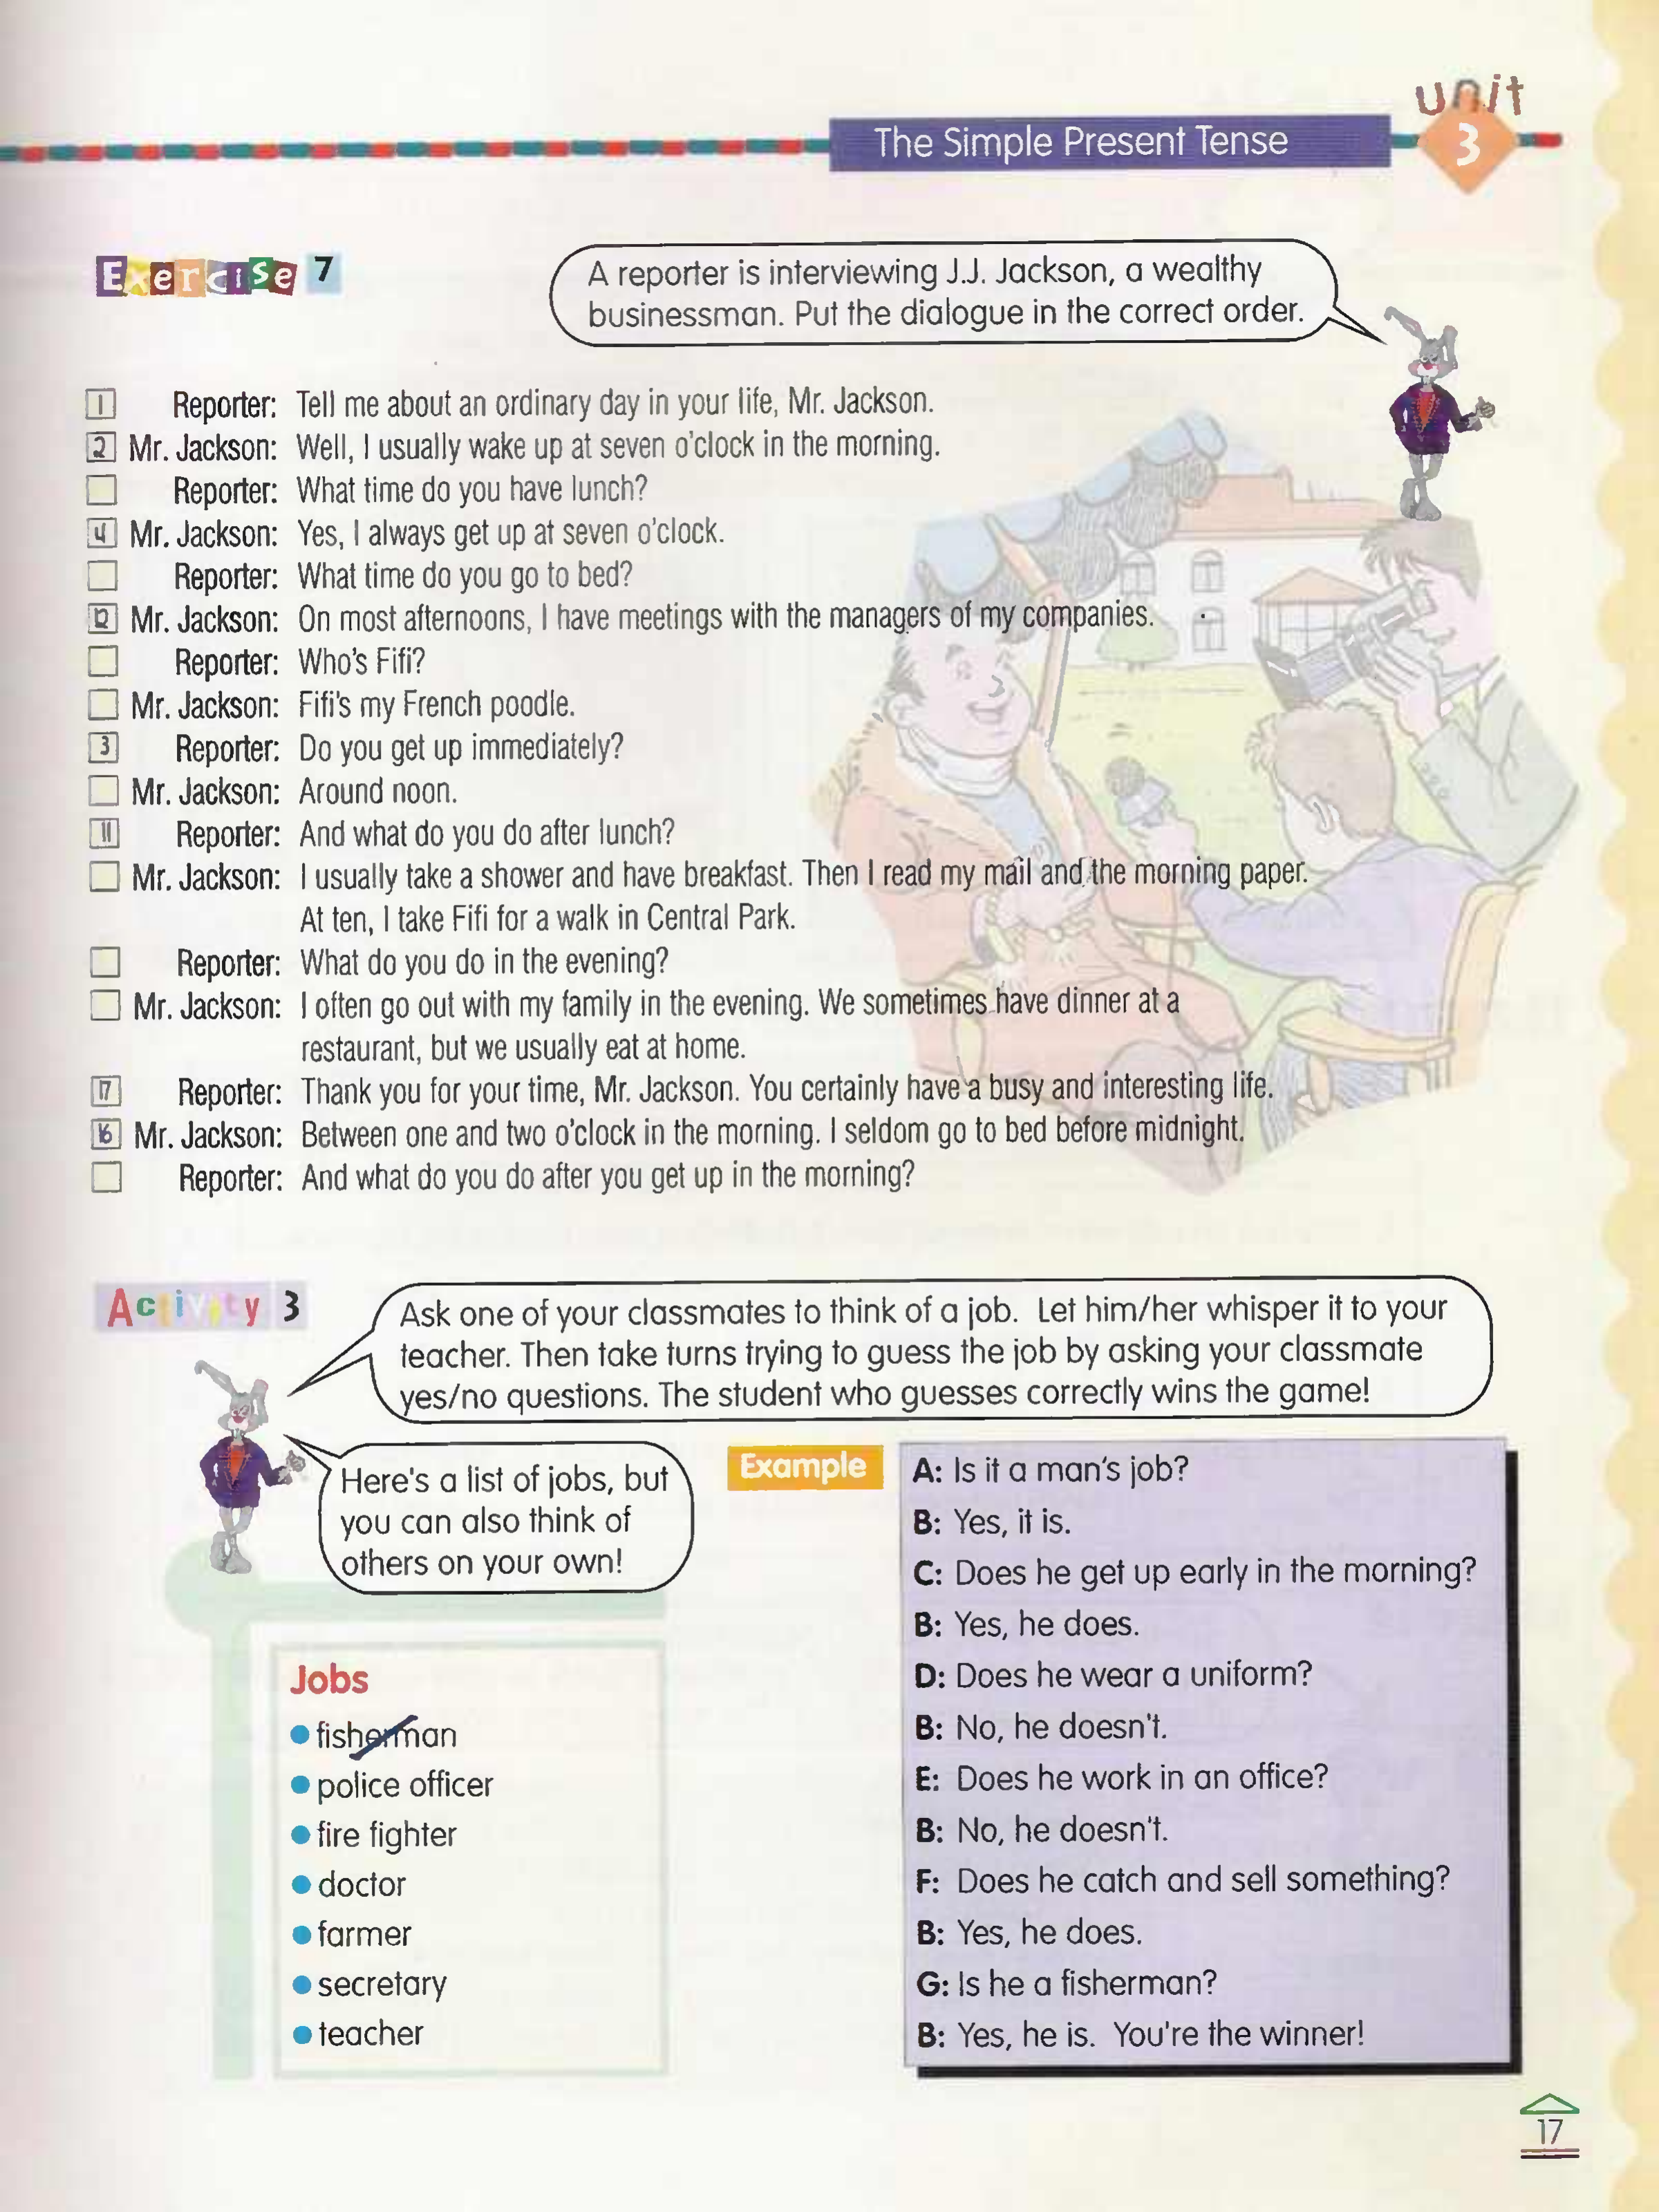 unit
The Simple Present Tense
3
Exercise 7
A reporter is interviewing J.J. Jackson, a wealthy
businessman. Put the dialogue in the correct order.
1 Reporter: Tell me about an ordinary day in your life, Mr. Jackson.
2 Mr. Jackson: Well, I usually wake up at seven o'clock in the morning.
Reporter: What time do you have lunch?
4 Mr. Jackson: Yes, I always get up at seven o'clock.
Reporter: What time do you go to bed?
12 Mr. Jackson: On most afternoons, I have meetings with the managers of my companies.
Reporter: Who's Fifi?
Mr. Jackson: Fifi's my French poodle.
3 Reporter: Do you get up immediately?
Mr. Jackson: Around noon.
11 Reporter: And what do you do after lunch?
Mr. Jackson: I usually take a shower and have breakfast. Then I read my mail and the morning paper.
At ten, I take Fifi for a walk in Central Park.
Reporter: What do you do in the evening?
Mr. Jackson: I often go out with my family in the evening. We sometimes have dinner at a
restaurant, but we usually eat at home.
17 Reporter: Thank you for your time, Mr. Jackson. You certainly have a busy and interesting life.
16 Mr. Jackson: Between one and two o'clock in the morning. I seldom go to bed before midnight.
Reporter: And what do you do after you get up in the morning?
Activity 3
Ask one of your classmates to think of a job. Let him/her whisper it to your
teacher. Then take turns trying to guess the job by asking your classmate
yes/no questions. The student who guesses correctly wins the game!
Here's a list of jobs, but
you can also think of
others on your own!
Jobs
• fisherman
• police officer
• fire fighter
• doctor
• farmer
• secretary
• teacher
Example
A: Is it a man's job?
B: Yes, it is.
C: Does he get up early in the morning?
B: Yes, he does.
D: Does he wear a uniform?
B: No, he doesn't.
E: Does he work in an office?
B: No, he doesn't.
F: Does he catch and sell something?
B: Yes, he does.
G: Is he a fisherman?
B: Yes, he is. You're the winner!
17